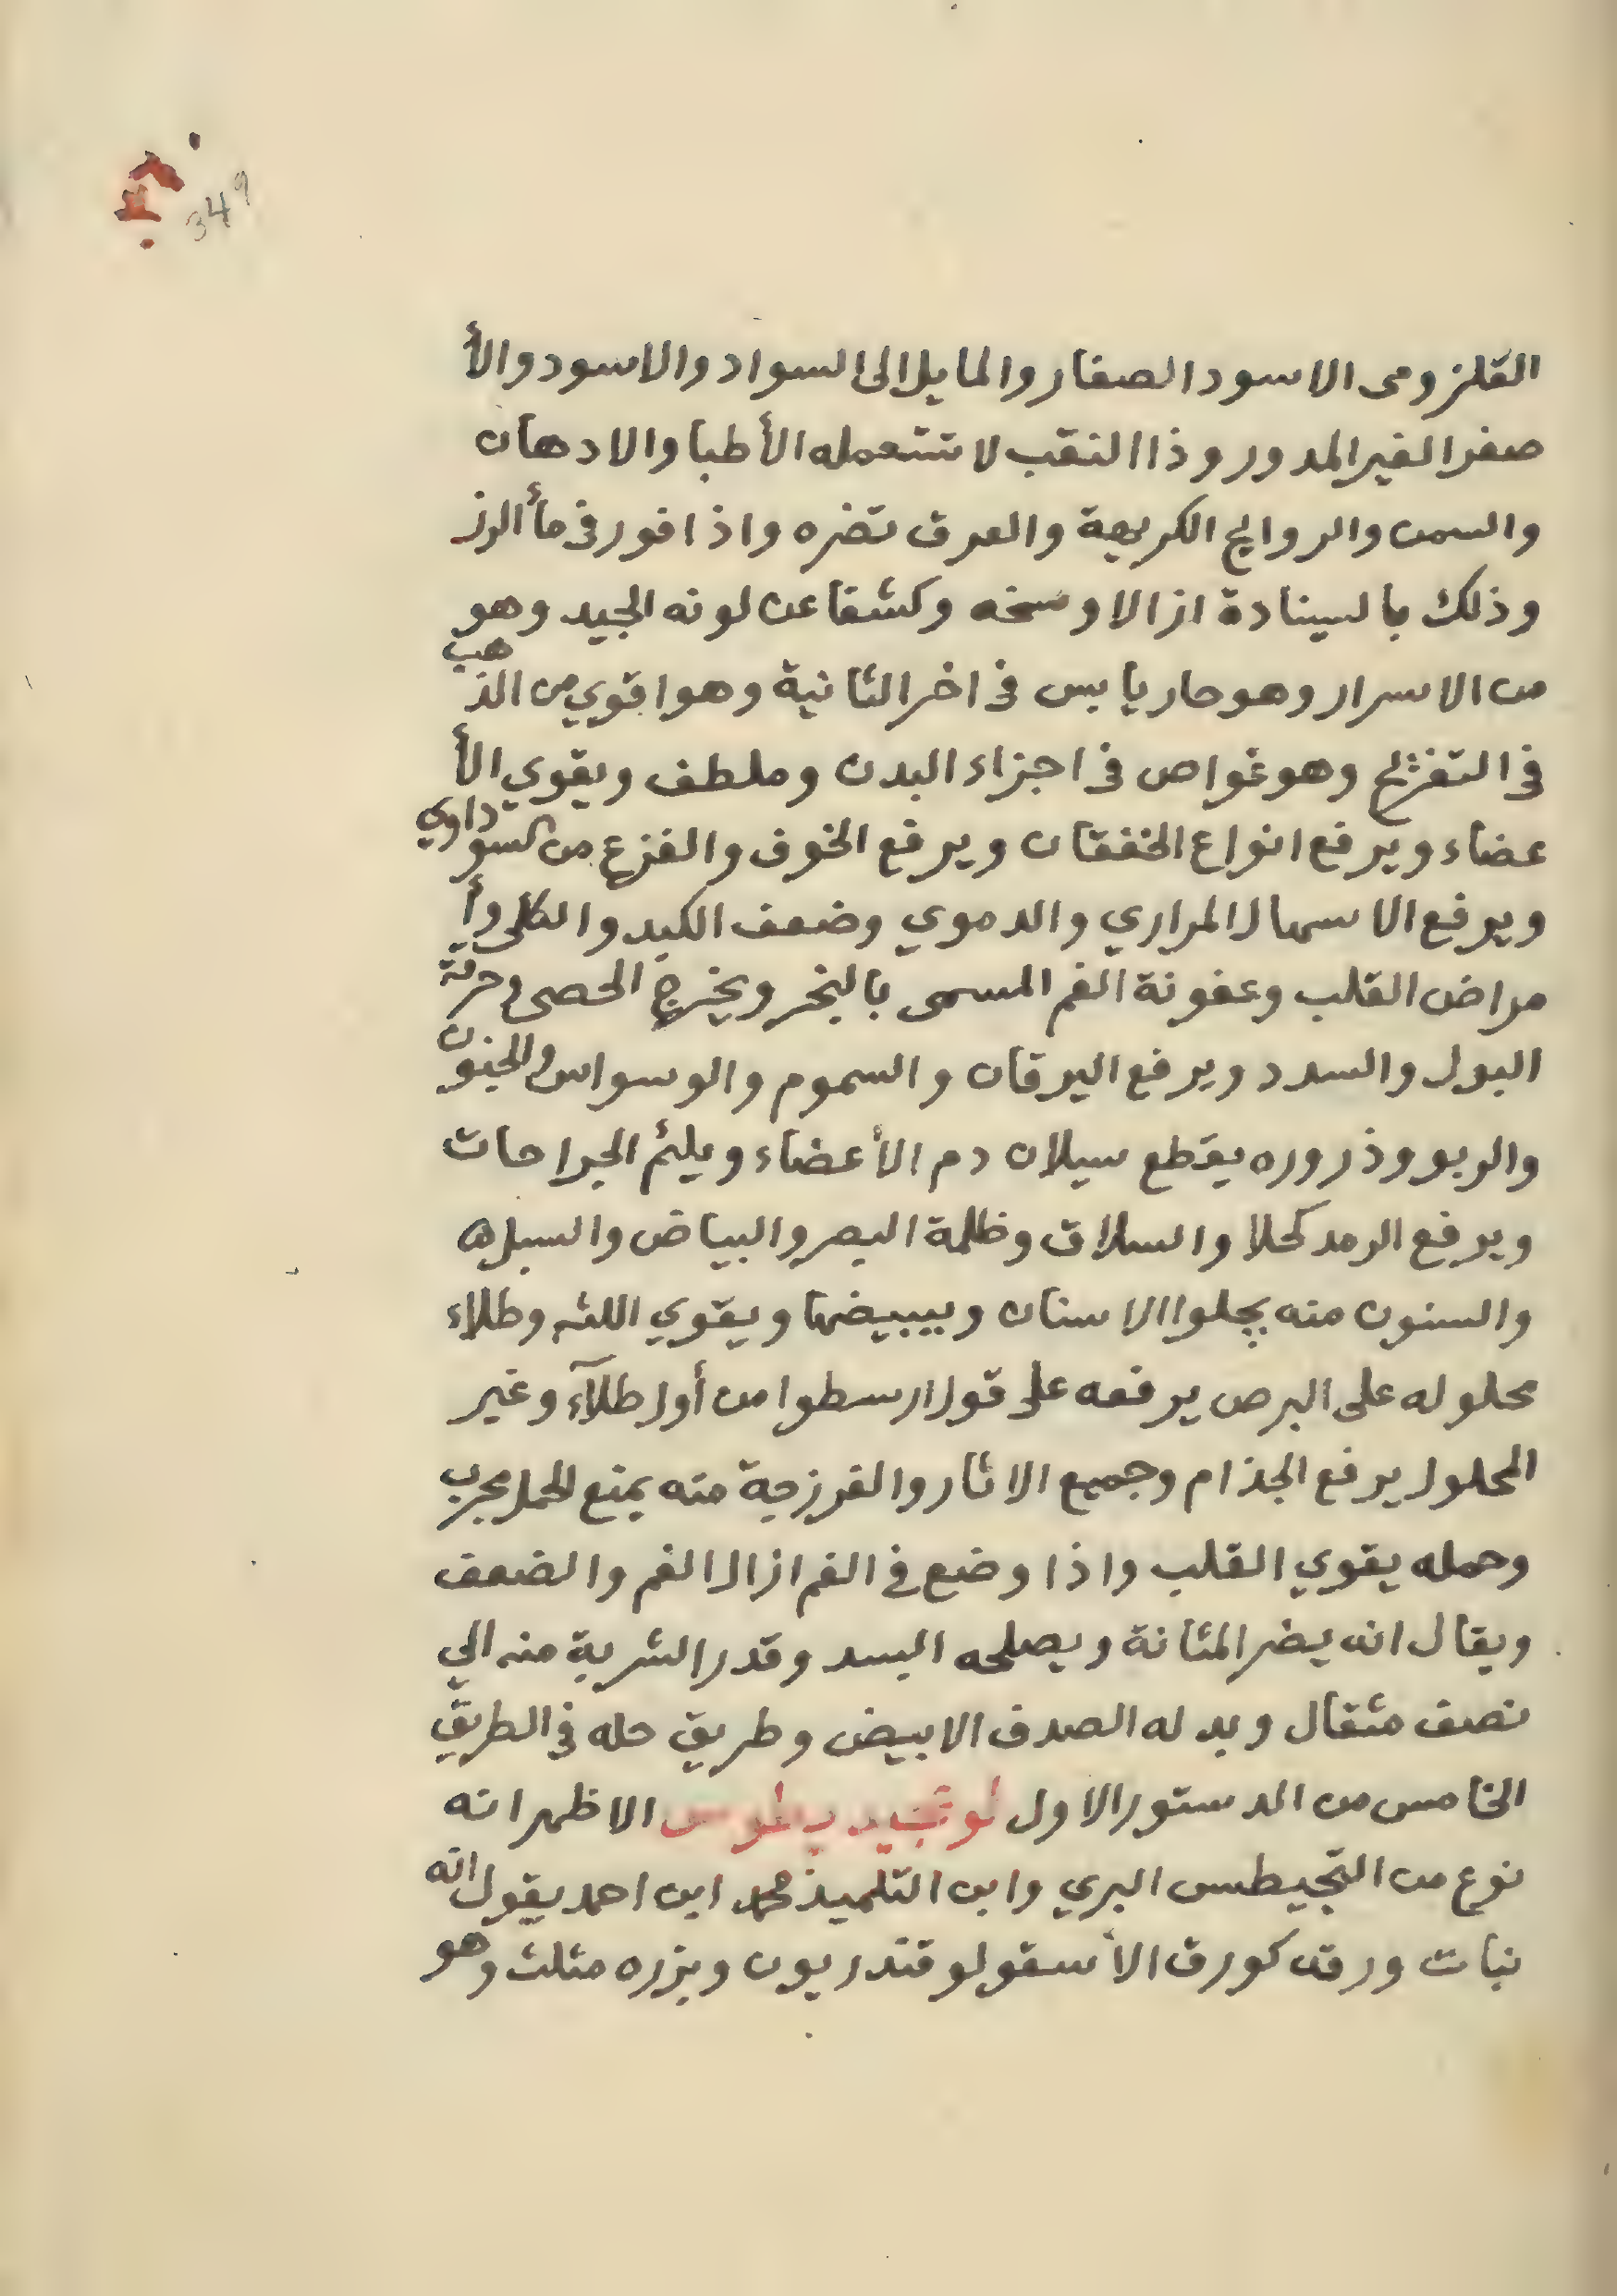 349
القلزومى الاسود الصفار والمايل الى السواد والاسود والأ
صفر الغير المدور وذا النقب لا تتعمله الأطبا والادهان
والسمن والروايح الكريهة والعرق تضره واذا فور فى مأ الرز
وذلك بالسينادة ازالا وسخه وكشفا عن لونه الجيد وهو
من الاسرار وهو حار يابس فى اخر الثانية وهو اقوي من الذهب
فى التفريح وهو غواص فى اجزاء البدن وملطف ويقوي الأ
عضاء ويرفع انواع الخفقان ويرفع الخوف والفزع من السوداوي
ويرفع الاسهال المراري والدموي وضعف الكبد والكلى وأ
مراض القلب وعفونة الفم المسمى بالبخر ويخرج الحصى وحرقة
البول والسدد ويرفع اليرقان والسموم والوسواس والجنون
والربو وذروره يقطع سيلان دم الأعضاء ويلئم الجراحات
ويرفع الرمد كحلا والسلاق وظلمة البصر والبياض والسبل ه
والسنون منه يجلوا الاسنان ويبيضها ويقوي اللثه وطلاء
محلوله على البرص يرفعه على قول ارسطوا من أول طلآء وغير
المحلول يرفع الجذام وجميع الاثار والفرزجة منه يمنع الحمل مجرب
وحمله يقوي القلب واذا وضع فى الفم ازال الغم والضعف
ويقال انه يضر المثانة ويصلحه البسد وقدر الشربة منه الي
نصف مثقال وبدله الصدف الابيض وطريق حله فى الطريق
الخامس من الدستور الاول الاظهر انه
نوع من التجيطس البري وابن التلميذ محمد ابن احمد يقول انه
نبات ورقه كورق الأسقولوقندريون وبزره مثلث وهو